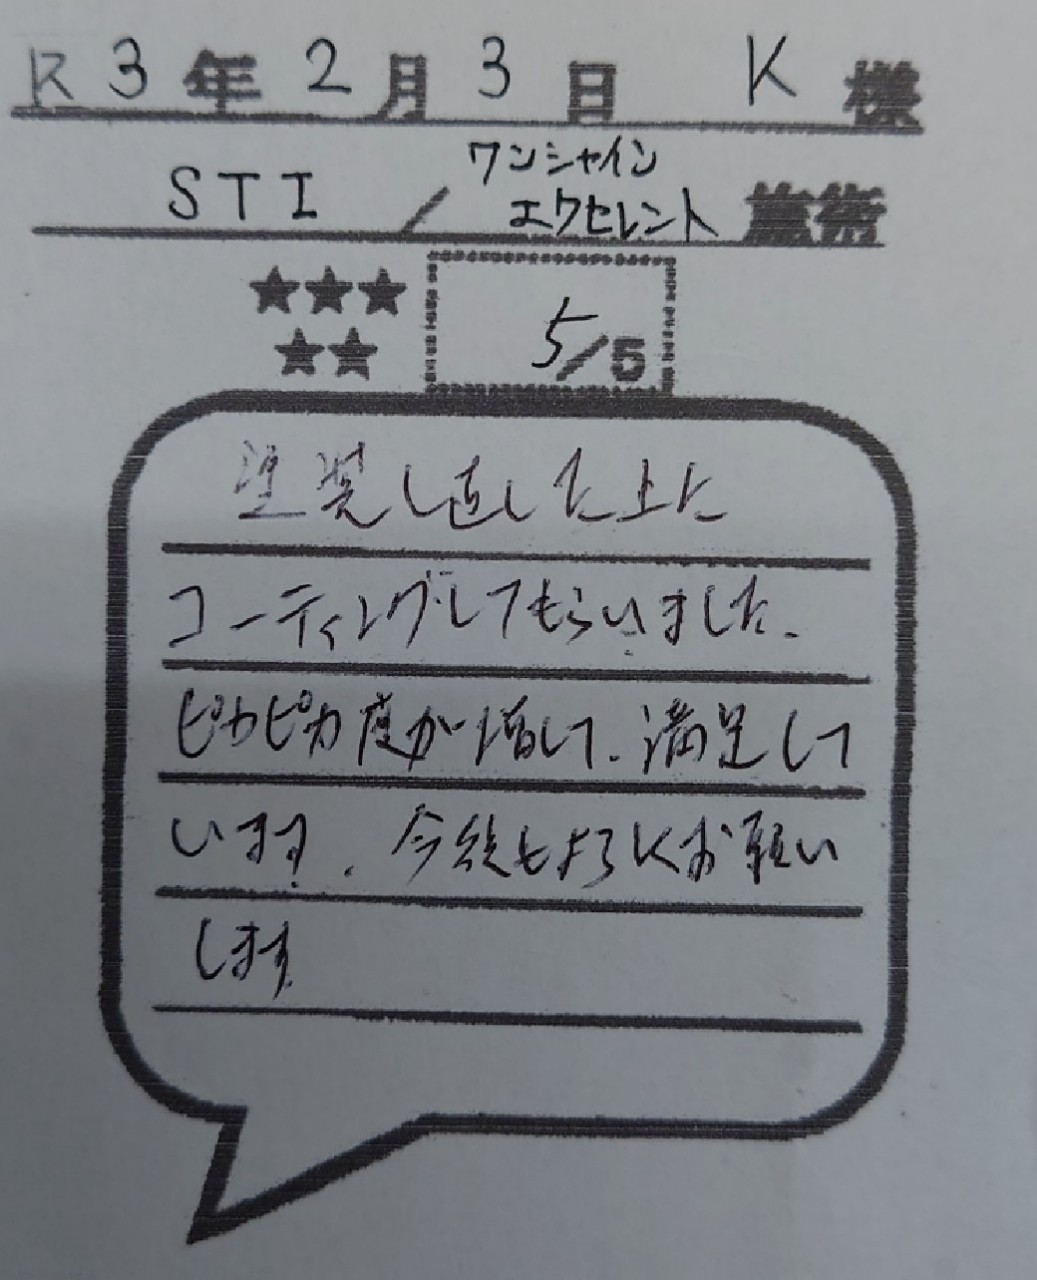 R3年2月3日 K様
STI / ワンシャイン
エクセレント 施術
★★★
★★
5/5
塗装し直した上に
コーティングしてもらいました.
ピカピカ度が増して、満足して
います. 今後もよろしくお願い
します